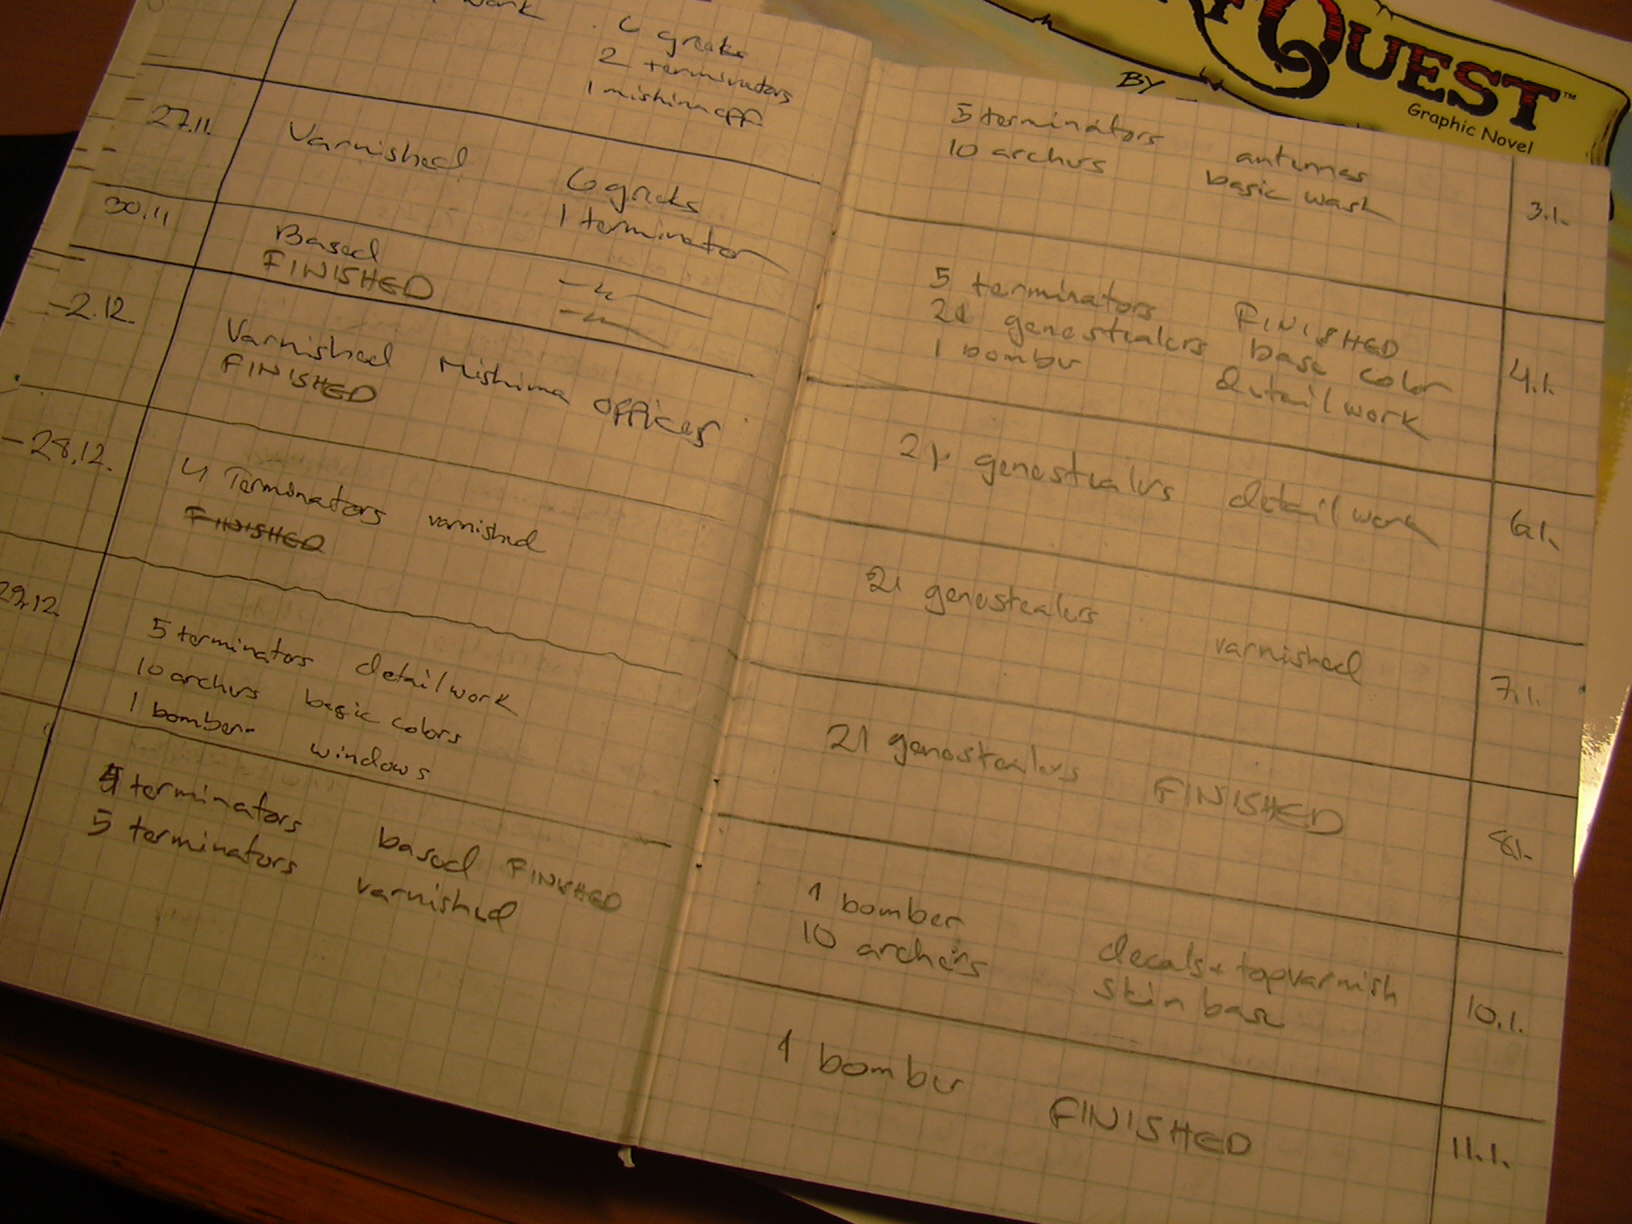 work 6 greeks
2 terminators
1 mishima off
27.11. Varnished 6 greeks
1 terminator
30.11 Based -"-
FINISHED -"-
-2.12. Varnished Mishima officer
FINISHED
-28.12. 4 Terminators varnished
FINISHED
29.12. 5 terminators detail work
10 archers basic colors
1 bomber windows
4 terminators based FINISHED
5 terminators varnished
QUEST™
Graphic Novel
BY
5 terminators antennas
10 archers basic wash 3.1.
5 terminators FINISHED
21 genestealers base color
1 bomber detail work 4.1.
21 genestealers detail work 6.1.
21 genestealers varnished 7.1.
21 genestealers FINISHED 8.1.
1 bomber decals + topvarnish
10 archers skin base 10.1.
1 bomber FINISHED 11.1.